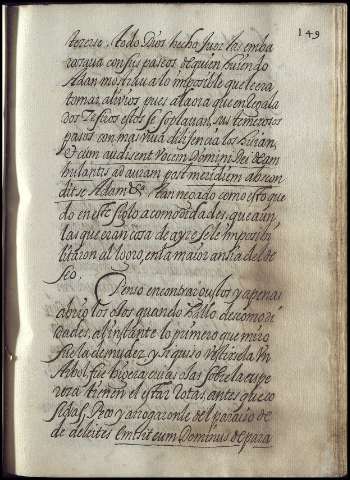 149
tererse. Todo Dios hecho Juez las emba
con sus paseos de quien huiendo
Adan mostraua a lo imposible que era
tomar aliuios pues al aora que en regala
dos Zefiros estos se soplauan, sus temerosos
pasos con mas viua diligencia los huian,
Et cum audisent vocem Domini Dei deam
bulantis ad auram post meridiem abscon
dit se Adam &c. tan negado como esto que
do en este siglo a comodidades, que aun
las que eran cosa de ayre se le imposibi
litaron al logro, en la maior ansia del de
seo.
Penso encontrar gustos y apenas
abrio los ojos quando hallo descomodi
dades, al instante lo primero que miro
fue la desnudez, y si quiso vestirsela vn
Arbol fue higuera cuias ojas sobre la aspe
reza tienen el estar rotas, antes que co
sidas. Peco y arrogaronle del paraiso de
de deleites Emisit eum Dominus de para